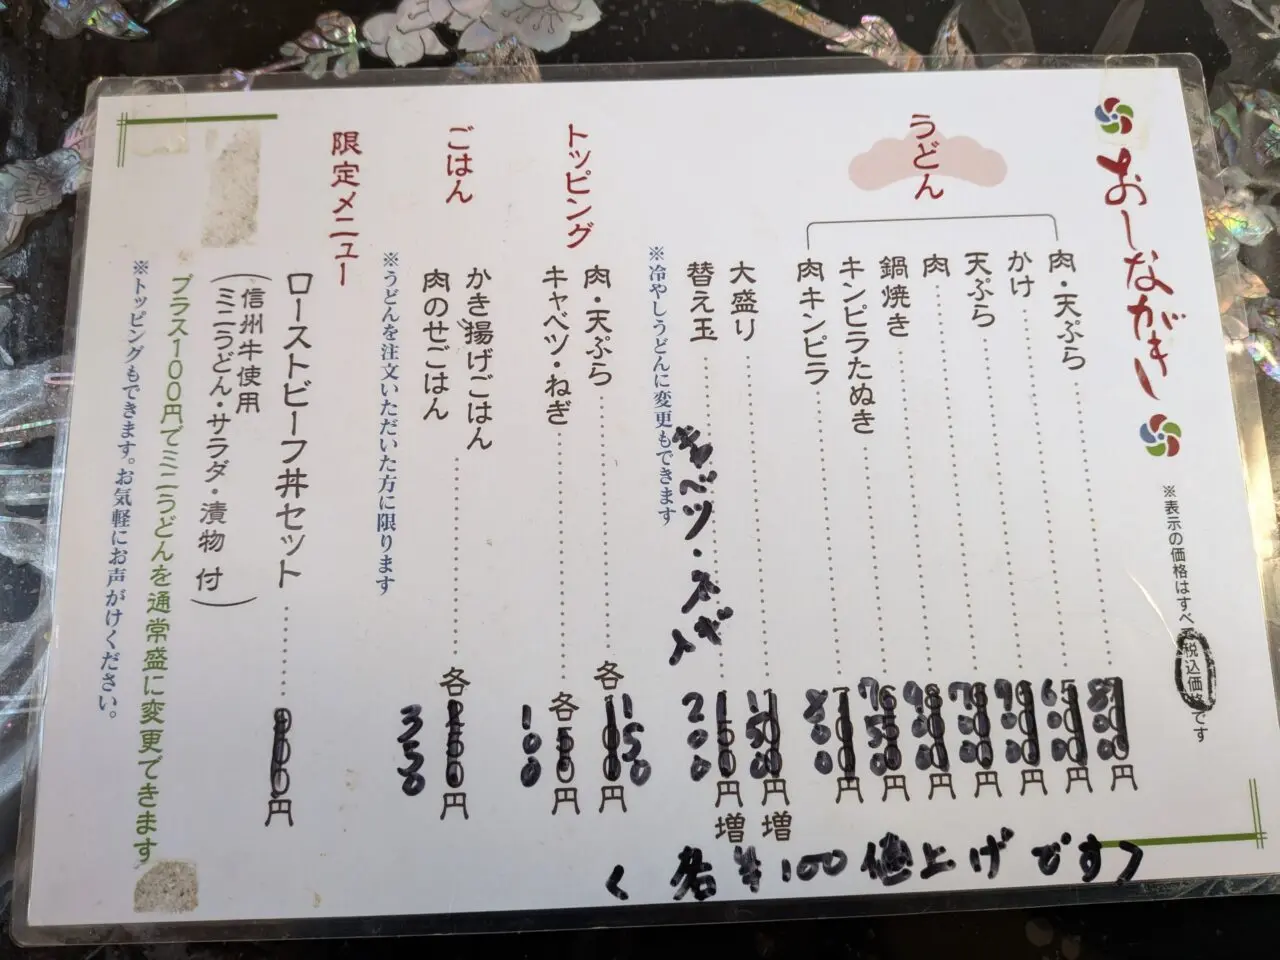 おしながき
※表示の価格はすべて税込価格です
うどん
肉・天ぷら 800円
かけ 600円
天ぷら 900円
肉 700円
鍋焼き 900円
キンピラたぬき 750円
肉キンピラ 800円
大盛り 150円増
替え玉 200円増
キャベツ・ネギ
※冷やしうどんに変更もできます
トッピング
肉・天ぷら 各150円
キャベツ・ねぎ 各100円
ごはん
かき揚げごはん
肉のせごはん 各350円
※うどんを注文いただいた方に限ります
限定メニュー
ローストビーフ丼セット 円
(信州牛使用
ミニうどん・サラダ・漬物 付)
プラス100円でミニうどんを通常盛に変更できます
※トッピングもできます。お気軽にお声がけください。
100値上げです